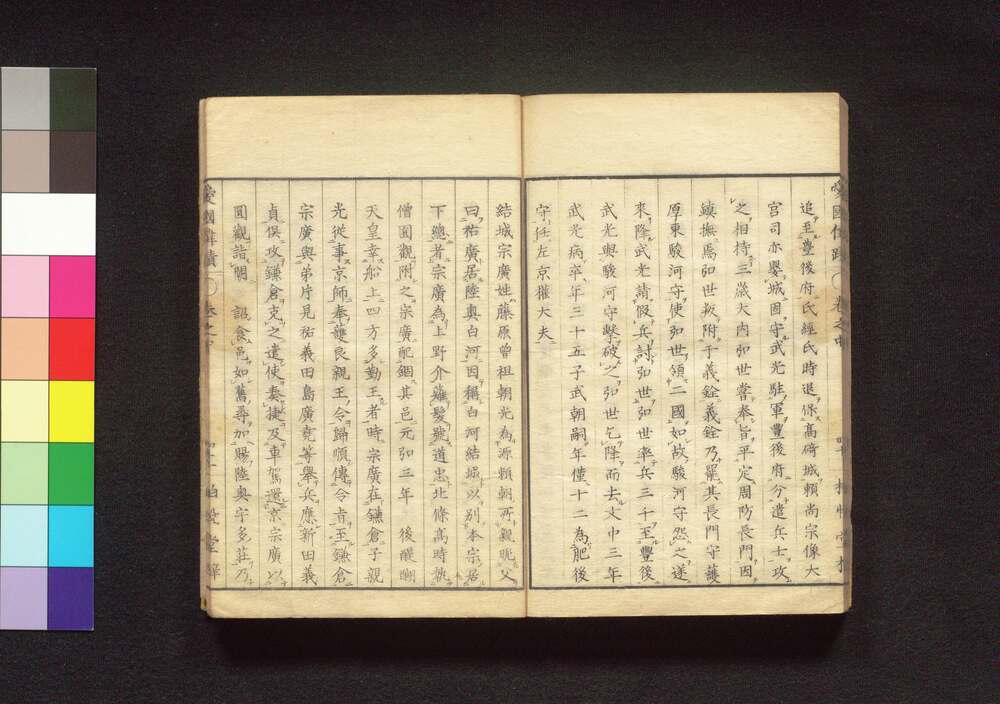 追至豊後府氏經氏時退保高﨑城頼尚宗像大
宮司亦擧城固守武光駐軍豊後府分遣兵士攻
之相持三歳大内弘世嘗奉旨平定周防長門因
鎮撫焉弘世叛附于義銓義銓乃罷其長門守護
厚東駿河守使弘世領二國如故駿河守怨之遂
來降武光請假兵討弘世弘世率兵三千至豊後
武光與駿河守擊破之弘世乞降而去文中三年
武光病卒年三十五子武朝嗣年僅十二為肥後
守任左京權大夫
結城宗廣姓藤原曾祖朝光為源頼朝所親昵父
曰祐廣居陸奥白河因稱白河結城以別本宗居
下總者宗廣為上野介薙髮號道忠北條髙時執
僧圓觀附之宗廣配錮其邑元弘三年 後醍醐
天皇幸船上四方多勤王者時宗廣在鎌倉子親
光從事京師奉護良親王令歸順傳令㫖至鎌倉
宗廣與弟片見祐義田島廣堯等舉兵應新田義
貞俱攻鎌倉克之遣使奏捷及車駕還京宗廣以
圓觀詣闕 詔食邑如舊尋加賜陸奥宇多莊乃
愛國偉蹟 卷之中